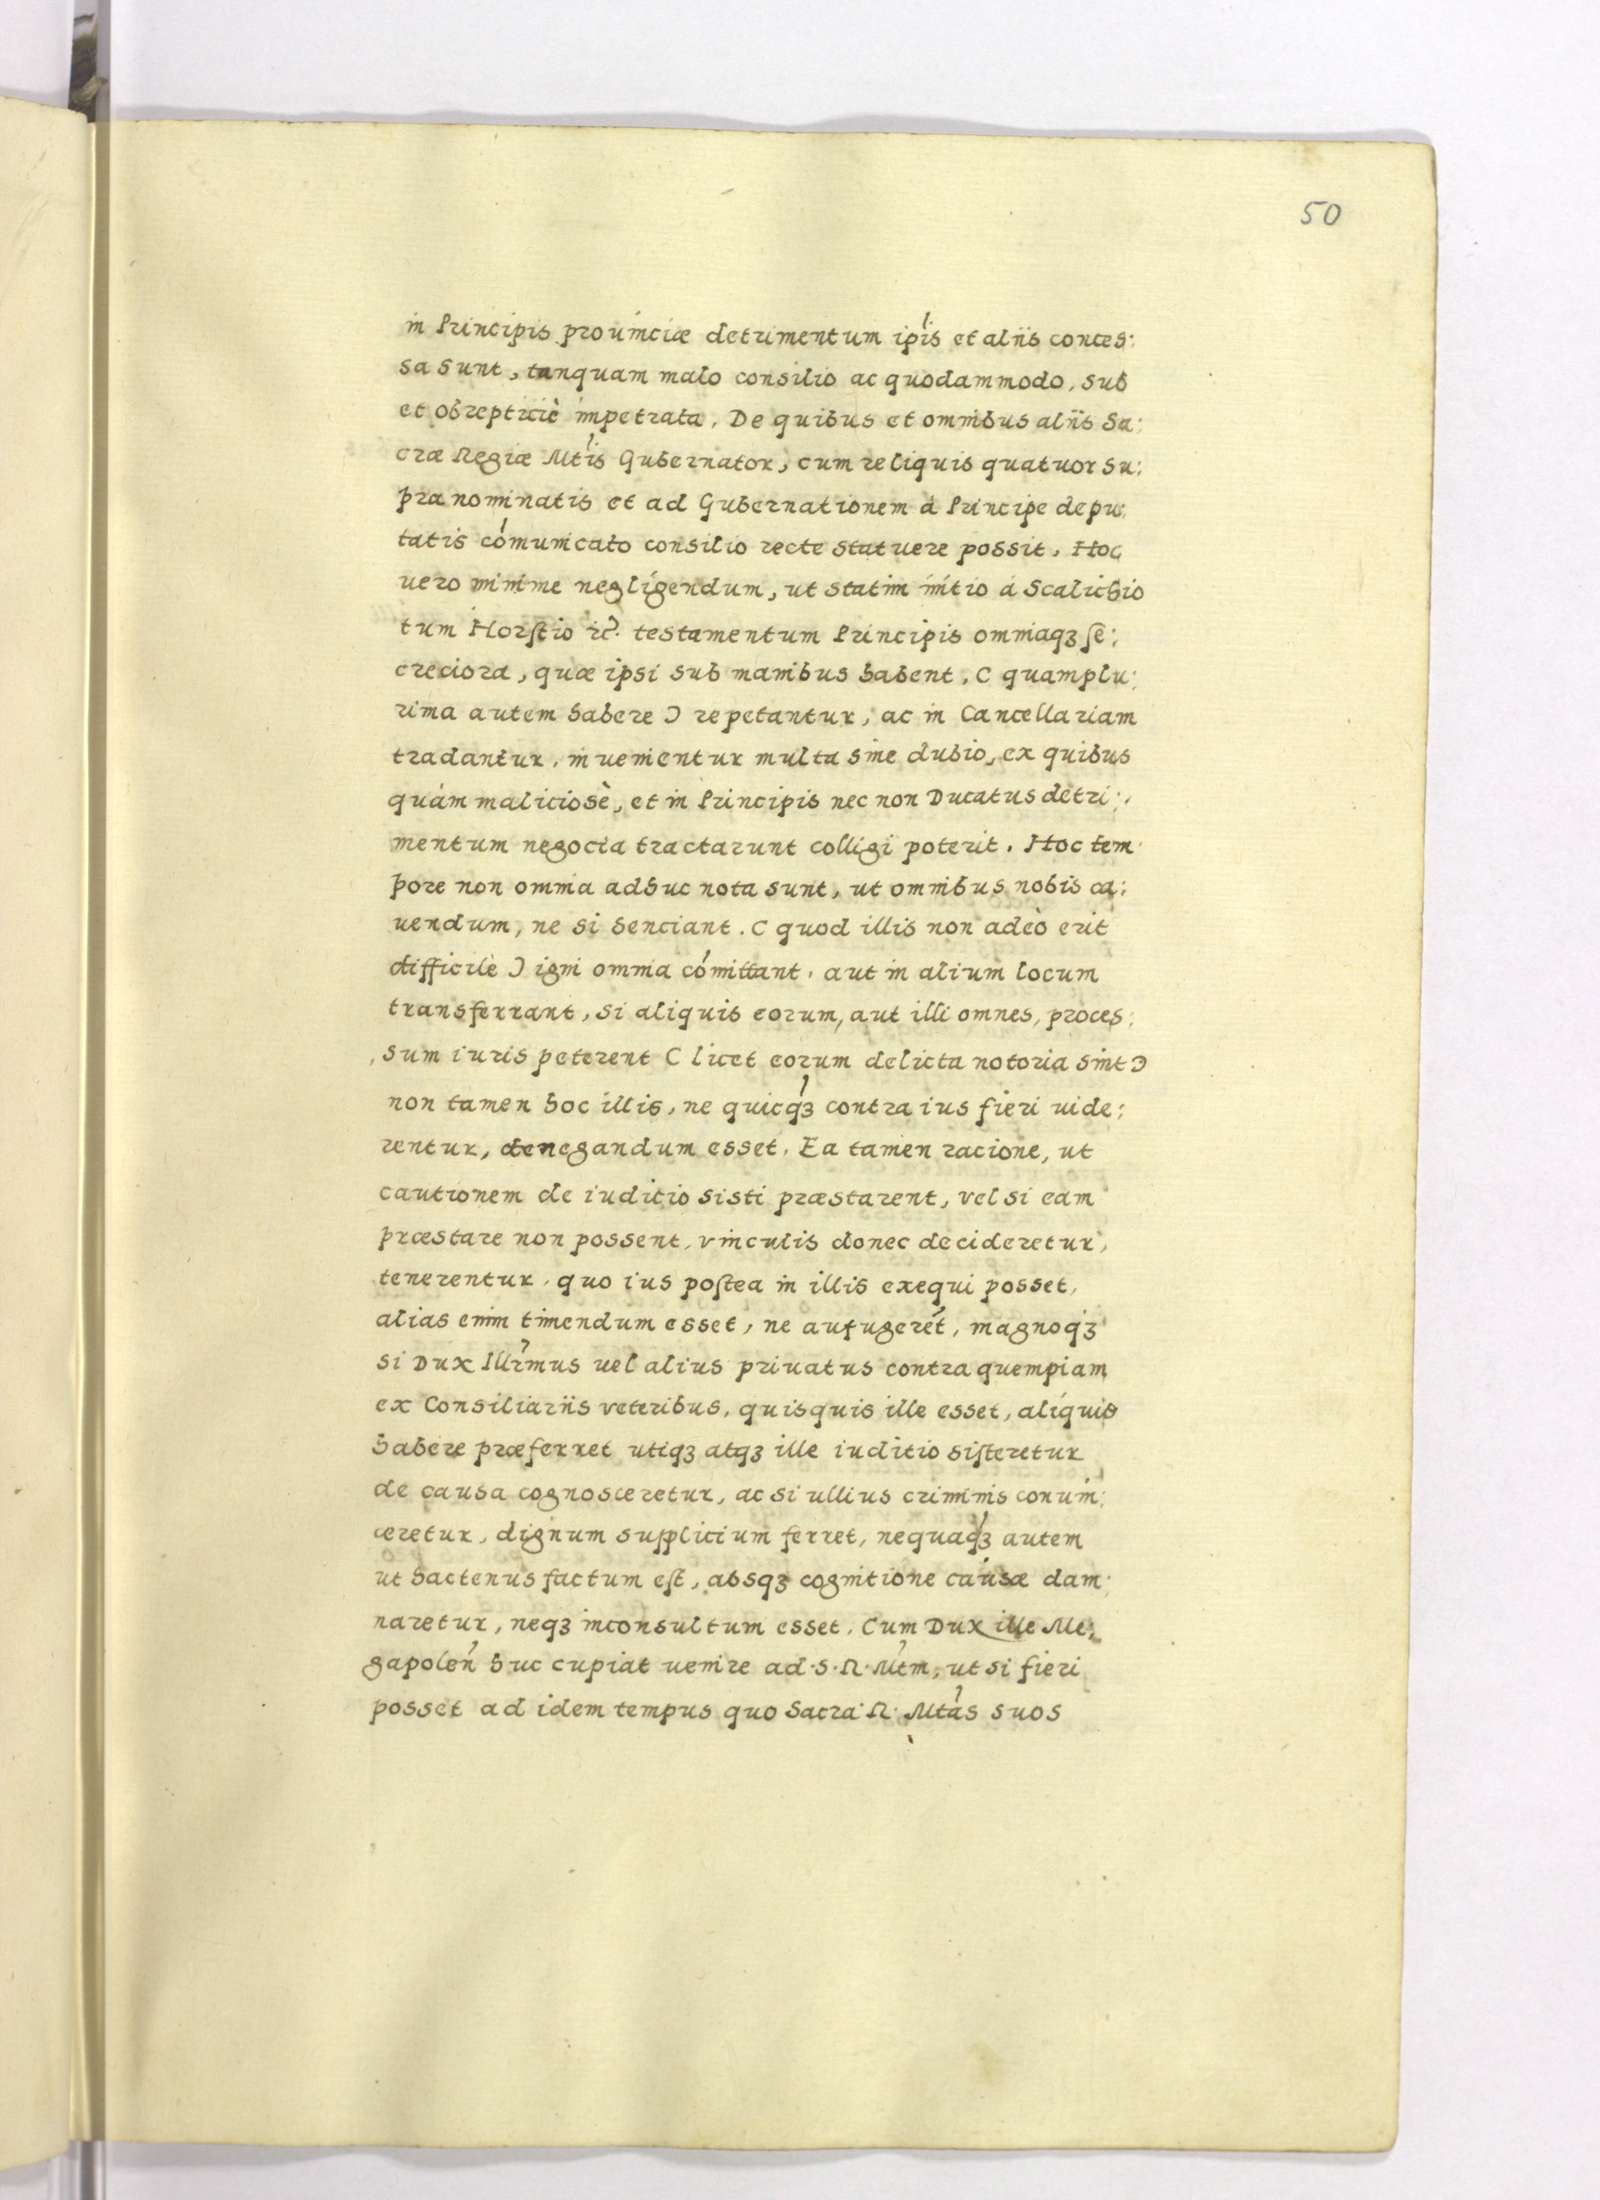 50
in Principis prouinciæ detrimentum ip̃is et aliis conces:
sa sunt, tanquam malo consilio ac quodammodo, sub
et obrepticiè impetrata. De quibus et omnibus aliis Sa:
cræ Regiæ Mt̃is Gubernator, cum reliquis quatuor su:
pra nominatis et ad Gubernationem à Principe depu:
tatis com̃unicato consilio recte statuere possit. Hoc
uero minime negligendum, ut statim initio à Scalichio
tum Horstio ꝛc̃. testamentum Principis omniaqꝫ se:
creciora, quæ ipsi sub manibus habent, ( quamplu:
rima autem habere ) repetantur, ac in Cancellariam
tradantur, inuenientur multa sine dubio, ex quibus
quàm maliciosè, et in Principis nec non Ducatus detri:
mentum negocia tractarunt colligi poterit. Hoc tem
pore non omnia adhuc nota sunt, ut omnibus nobis ca:
uendum, ne si senciant. ( quod illis non adeò erit
difficilè ) igni omnia com̃ittant, aut in alium locum
transferrant, si aliquis eorum, aut illi omnes, proces:
sum iuris peterent ( licet eorum delicta notoria sint )
non tamen hoc illis, ne quicq̃ꝫ contra ius fieri uide:
rentur, denegandum esset. Ea tamen racione, ut
cautionem de iuditio sisti præstarent, vel si eam
præstare non possent, vinculis donec decideretur,
tenerentur, quo ius postea in illis exequi posset,
alias enim timendum esset, ne aufugerẽt, magnoqꝫ
si Dux Illr̃mus uel alius priuatus contra quempiam
ex Consiliariis veteribus, quisquis ille esset, aliquis
habere præferret utiqꝫ atqꝫ ille iuditio sisteretur
de causa cognosceretur, ac si ullius criminis conuin:
ceretur, dignum supplicium ferret, nequaq̃ꝫ autem
ut hactenus factum est, absqꝫ cognitione causæ dam:
naretur, neqꝫ inconsultum esset. Cum Dux ille Me:
gapoleñ huc cupiat uenire ad S. R. Mt̃m, ut si fieri
posset ad idem tempus quo Sacra R. Mt̃as suos